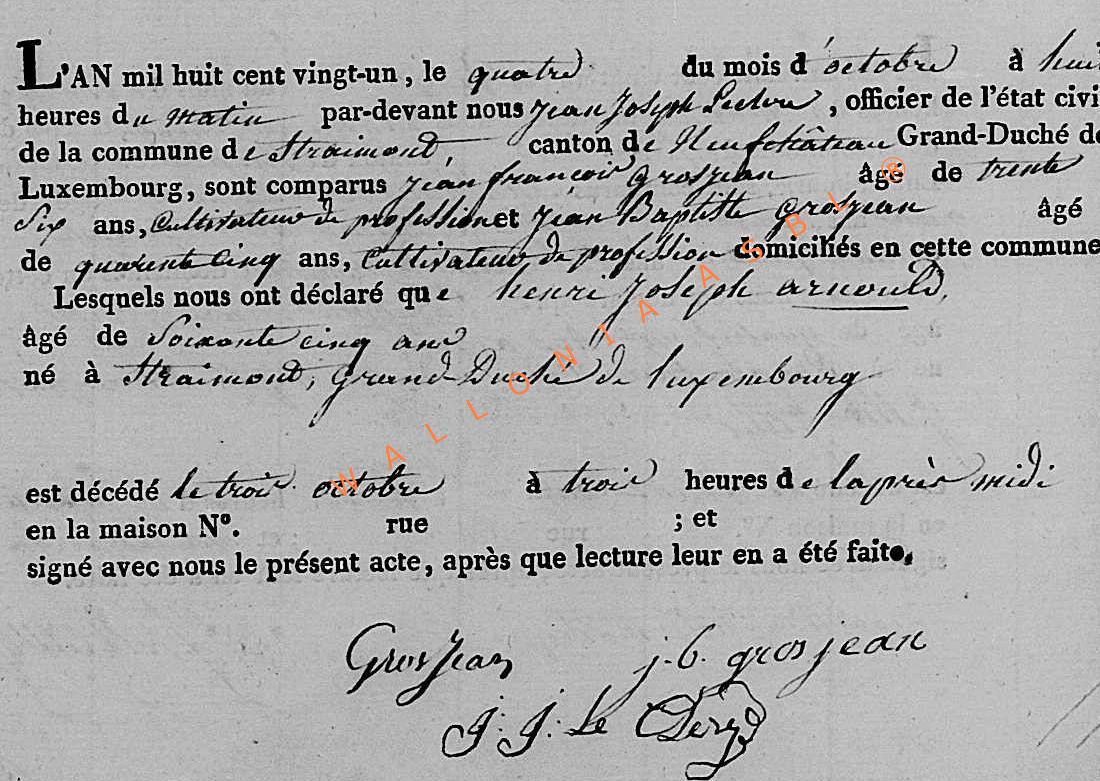 L'AN mil huit cent vingt-un, le quatre du mois d'octobre à huit
heures du matin par-devant nous Jean Joseph , officier de l'état civi
de la commune de Straimont, canton de Neufchâteau Grand-Duché de
Luxembourg, sont comparus jean françois Grosjean âgé de trente
Six ans, Cultivateur de profession et jean Baptiste Grosjean âgé
de quarente cinq ans, Cultivateur de profession domiciliés en cette commune
Lesquels nous ont déclaré que henri Joseph arnould,
âgé de Soixante cinq ans
né à Straimont, Grand-Duché de luxembourg
est décédé le trois octobre à trois heures de laprès midi
en la maison N°. rue ; et
signé avec nous le présent acte, après que lecture leur en a été faite.
GrosJean j. b. grosjean
J. J. Le
WALLONIA ASBL ®